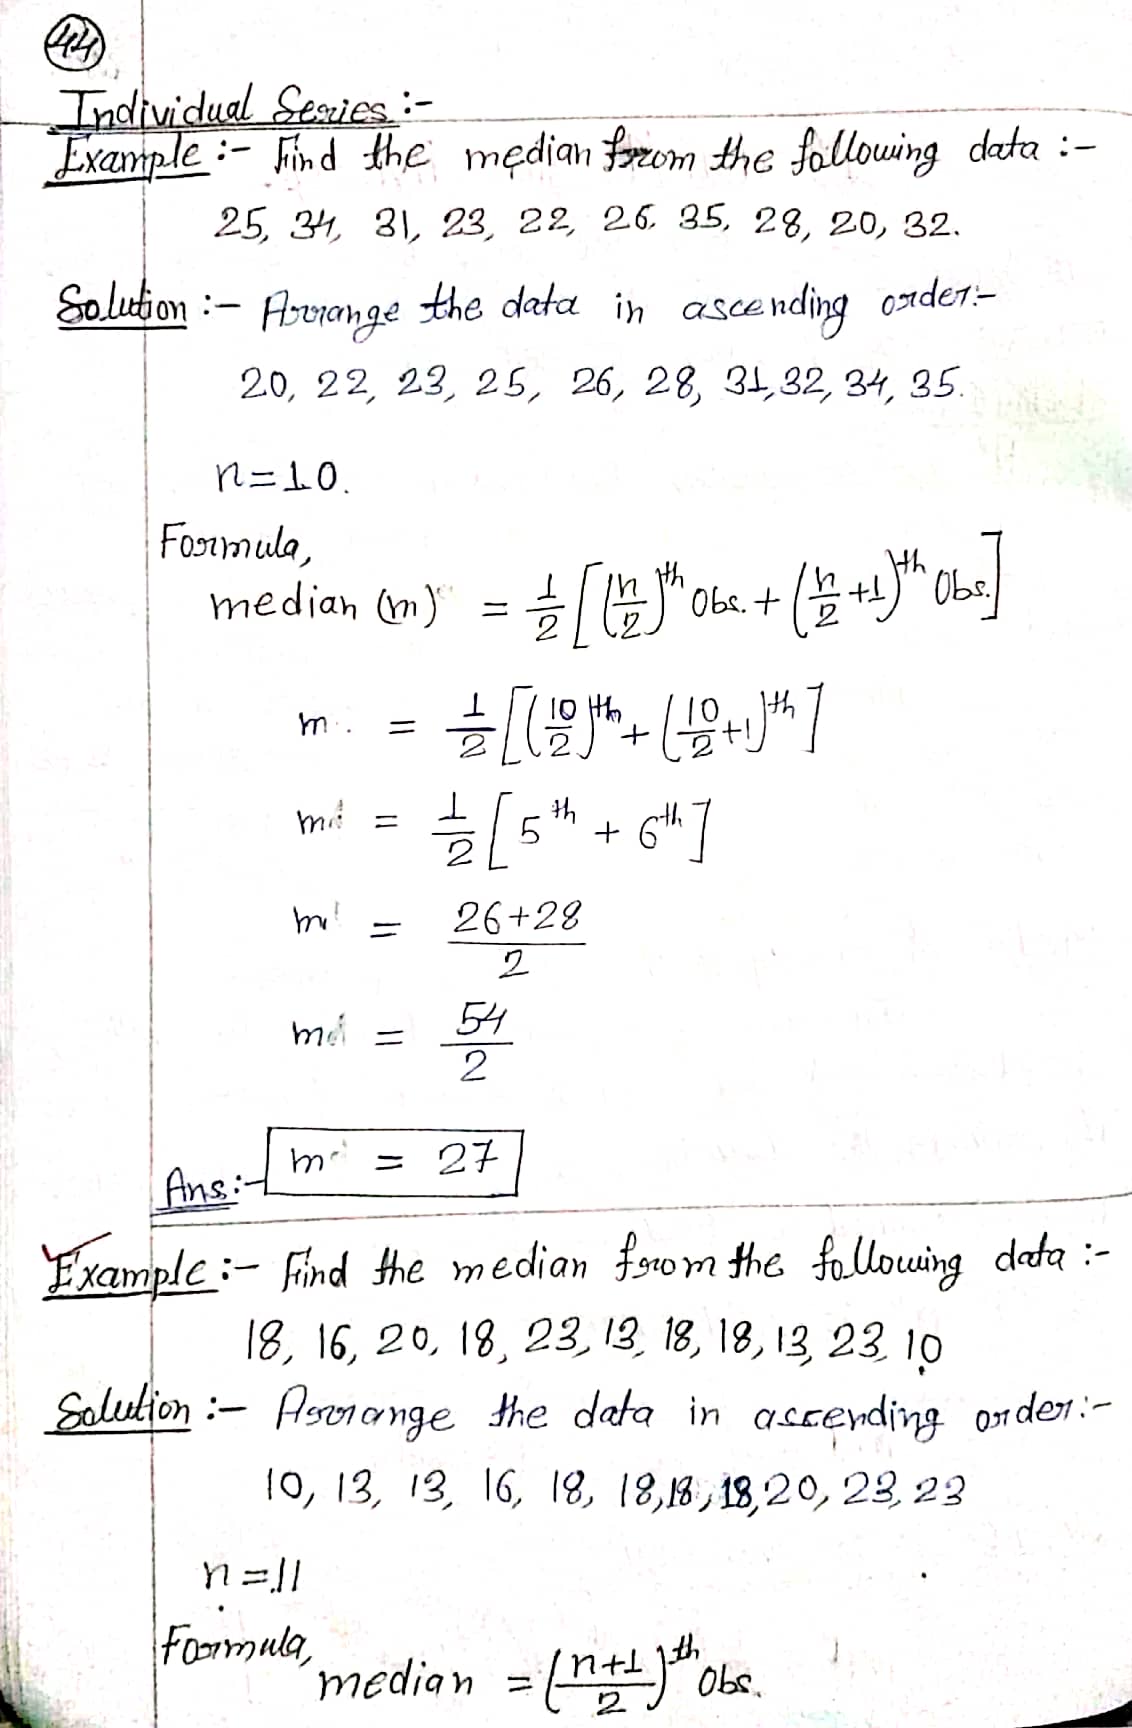 44
Individual Series :-
Example :- Find the median from the following data :-
25, 34, 31, 23, 22, 26, 35, 28, 20, 32.
Solution :- Arrange the data in ascending order:-
20, 22, 23, 25, 26, 28, 31, 32, 34, 35.
n=10.
Formula,
median (m) = 1/2 [(n/2)th Obs. + (n/2 +1)th Obs.]
m = 1/2 [(10/2)th + (10/2 +1)th]
m = 1/2 [5th + 6th]
m = 26+28/2
m = 54/2
Ans:- m = 27
Example :- Find the median from the following data :-
18, 16, 20, 18, 23, 13, 18, 18, 13, 23, 10
Solution :- Arrange the data in ascending order:-
10, 13, 13, 16, 18, 18, 18, 18, 20, 23, 23
n=11
Formula,
median = (n+1/2)th Obs.